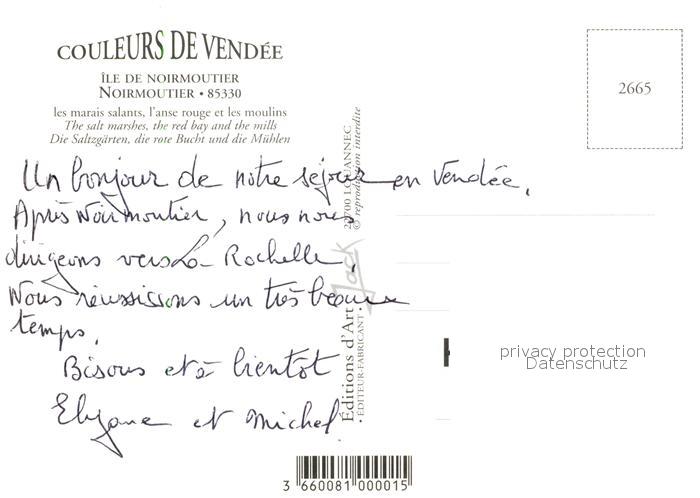 COULEURS DE VENDÉE
ÎLE DE NOIRMOUTIER
NOIRMOUTIER • 85330
les marais salants, l'anse rouge et les moulins
The salt marshes, the red bay and the mills
Die Saltzgärten, die rote Bucht und die Mühlen
2665
Un bonjour de notre séjour en Vendée.
Après Noirmoutier, nous nous
dirigeons vers La Rochelle.
Nous réussissons un très beau
temps.
Bisous et à bientôt
Elyane et Michel.
Éditions d'Art Jack
• ÉDITEUR-FABRICANT •
22700 LOUANNEC
© reproduction interdite
privacy protection
Datenschutz
3 660081 000015